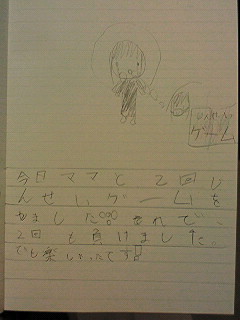 ゲーム
今日ママと2回じ
んせいゲームを
をました!!!それで
2回も負けました。
でも楽しかったです!!